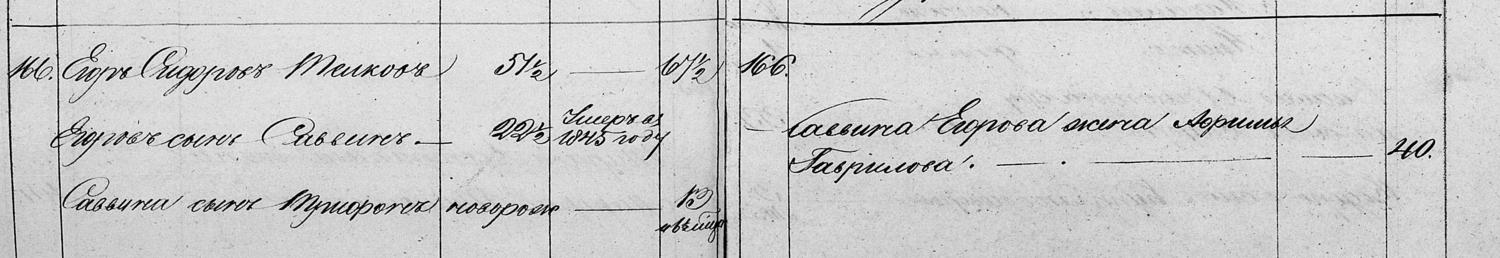 166. Егоръ Сидоровъ Телковъ 51½ — 67½
Егоровъ сынъ Саввинъ — 22½ Умеръ въ 1845 году
Саввина сынъ Трифонъ новорож — 13
166.
— Саввина Егорова жена Афимья
Гаврилова. — 40.